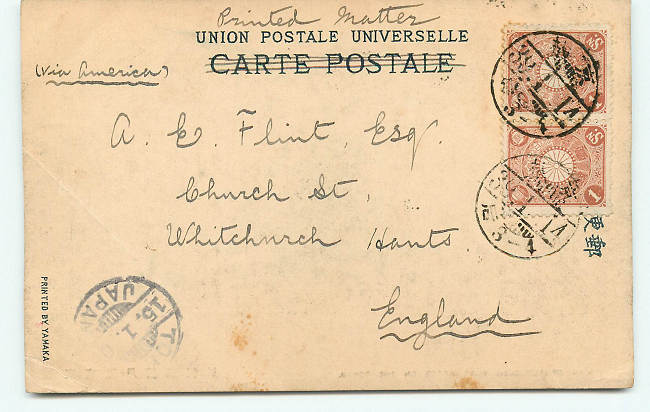 Printed Matter
UNION POSTALE UNIVERSELLE
CARTE POSTALE
(Via America)
A. E. Flint, Esq.
Church St,
Whitchurch Hants.
England
PRINTED BY YAMAKA
JAPAN
15. 1.
1
便郵